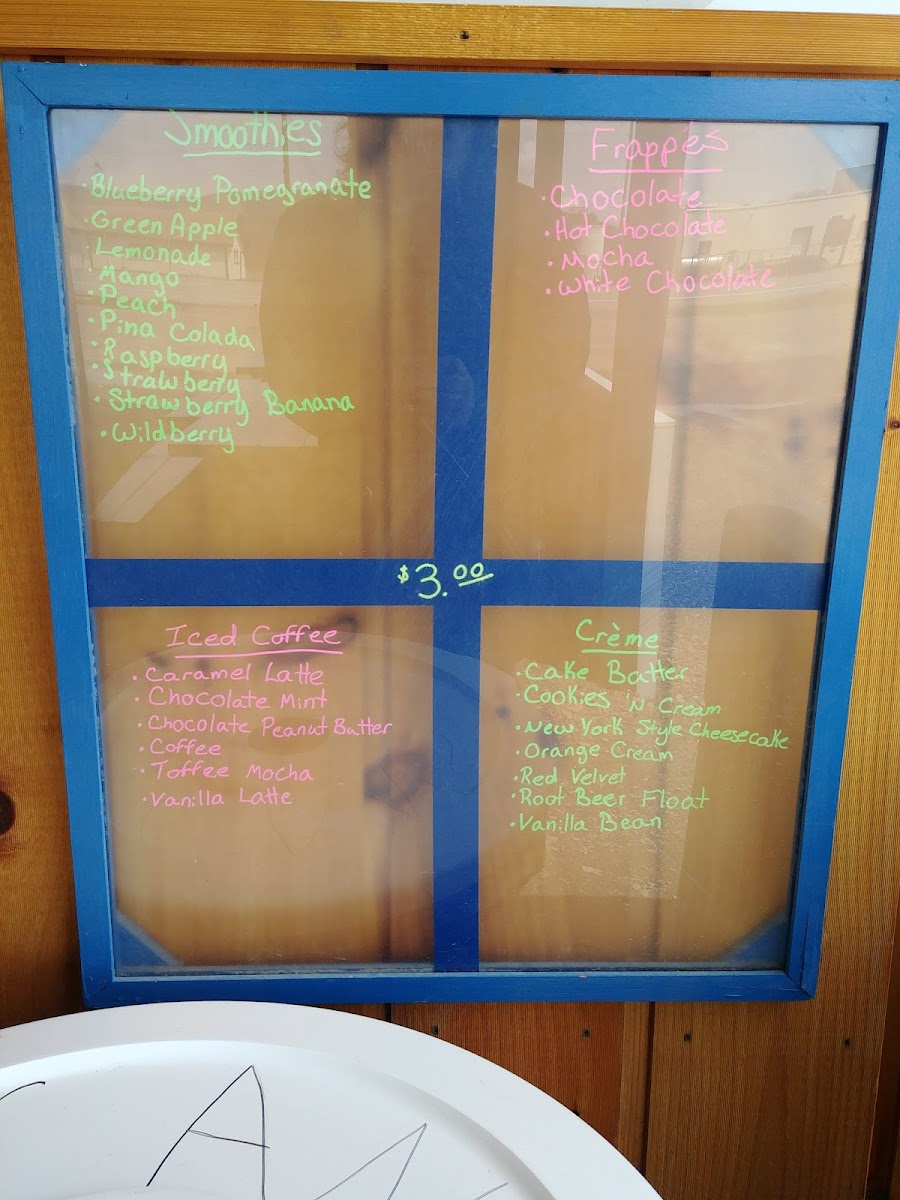 Smoothies
·Blueberry Pomegranate
·Green Apple
·Lemonade
·Mango
·Peach
·Pina Colada
·Raspberry
·Strawberry
·Strawberry Banana
·Wildberry
Frappés
·Chocolate
·Hot Chocolate
·Mocha
·White Chocolate
$3.00
Iced Coffee
·Caramel Latte
·Chocolate Mint
·Chocolate Peanut Butter
·Coffee
·Toffee Mocha
·Vanilla Latte
Crème
·Cake Batter
·Cookies N Cream
·New York Style Cheesecake
·Orange Cream
·Red Velvet
·Root Beer Float
·Vanilla Bean